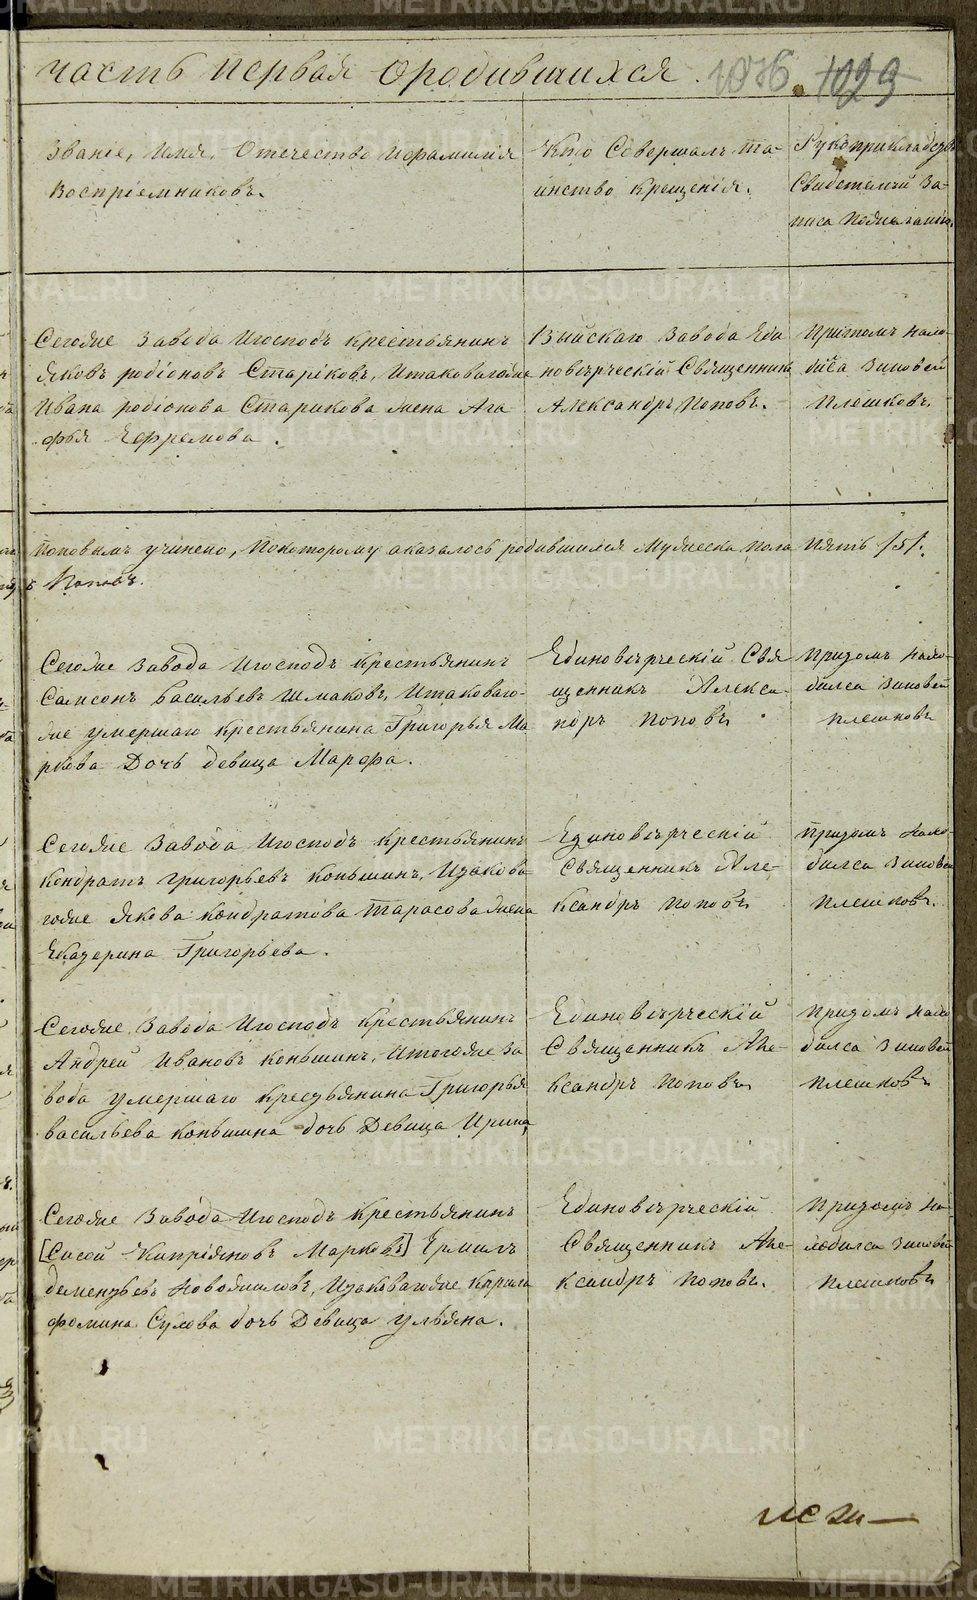 часть первая о родившихся. 1036. 1029
Званіе, Имя, Отечество и фамилія
Воспріемниковъ.
Кто Совершалъ та-
инство крещенія.
Рукоприкладство
Свидетелей За-
писа По желанію
Сегоже Завода Игосподъ крестьянинъ
Яковъ родіоновъ Стариковъ, Итаковагоже
Ивана родіонова Старикова жена Ага-
фья Ефремова.
Выйскаго Завода Еди
новѣрческій Священникъ
Александръ Поповъ.
Притомъ нахо-
дился Зиновей
Плешковъ.
Поповымъ учинено, Покоторому аказалось родившихся Мужеска пола Пять /5/.
Поповъ.
Сегоже Завода Игосподъ Крестьянинъ
Самсонъ Васильевъ Шмаковъ, Итаковаго-
же умершаго крестьянина Григорья Ма-
ркова Дочь девица Марфа.
Единовѣрческій Свя
щенникъ Алекса-
ндръ Поповъ
Притомъ нахо-
дился Зиновей
Плешковъ
Сегоже Завода Игосподъ Крестьянинъ
Кондратъ Григорьевъ Коньшинъ, Итакова-
гоже Якова Кондратова Тарасова жена
Екатерина Григорьева.
Единовѣрческій
Священникъ Але-
ксандръ Поповъ
Притомъ нахо-
дился Зиновей
Плешковъ.
Сегоже Завода Игосподъ Крестьянинъ
Андрей Ивановъ Коньшинъ, Итогоже За
вода умершаго Крестьянина Григорья
Васильева Коньшина дочь Девица Ирина,
Единовѣрческій
Священникъ Але-
ксандръ Поповъ
Притомъ нахо
дился Зиновей
Плешковъ
Сегоже Завода Игосподъ Крестьянинъ
[Сисой Кипріяновъ Марковъ] Ермилъ
Дементьевъ Новожиловъ, Итаковагоже Кирила
Фомина Сухова дочь Девица Ульяна.
Единовѣрческій
Священникъ Але-
ксандръ Поповъ.
Притомъ на-
ходился Зиновей
Плешковъ
METRIKI.GASO-URAL.RU